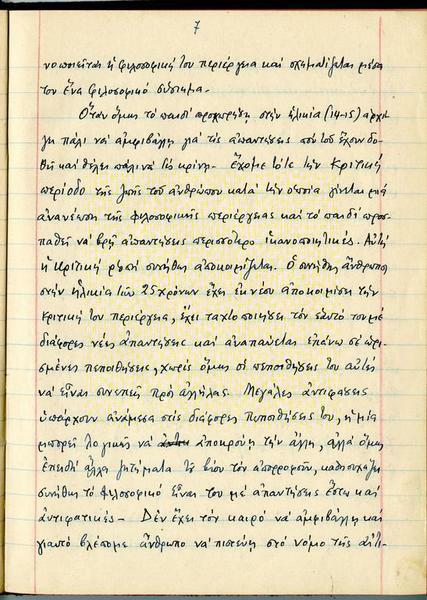 7
νοποιεῖται ἡ φιλοσοφική του περιέργεια καί σχηματίζεται μέσα
του ἕνα φιλοσοφικό σύστημα.
Ὅταν ὅμως τό παιδί προχωρήση στήν ἡλικία (14-15) ἀρχί-
ζει πάλι νά ἀμφιβάλη γιά τίς ἀπαντήσεις πού τοῦ ἔχουν δο-
θῆ καί θέλει πάλι νά τίς κρίνη. Ἔχομε τότε τήν Κριτική
περίοδο τῆς ζωῆς τοῦ ἀνθρώπου κατά τήν ὁποία γίνεται μιά
ἀνανέωση τῆς φιλοσοφικῆς περιέργειας καί τό παιδί προσ-
παθεῖ νά βρῆ ἀπαντήσεις περισσότερο ἱκανοποιητικές. Αὐτή
ἡ κριτική συνήθως ἀποκοιμίζεται. Ὁ συνήθης ἄνθρωπος
στήν ἡλικία τῶν 25 χρόνων ἔχει ἐκ νέου ἀποκοιμίσει τήν
κριτική του περιέργεια, ἔχει τόν ἑαυτό του μέ
διάφορες νέες ἀπαντήσεις καί ἀναπαύεται ἐπάνω σέ ὡρι-
σμένες πεποιθήσεις, χωρίς ὅμως οἱ πεποιθήσεις του αὐτές
νά εἶναι συνεπεῖς πρός ἀλλήλας. Μεγάλες ἀντιφάσεις
ὑπάρχουν ἀνάμεσα στίς διάφορες πεποιθήσεις του, ἡ μία
μπορεῖ λογικῶς νά ἀποκρούη τήν ἄλλη, ἀλλά ὅμως
ἐπειδή ἄλλα ζητήματα τοῦ βίου τόν ἀπορροφοῦν, καθησυχάζει
συνήθως τό φιλοσοφικό εἶναι του μέ ἀπαντήσεις ἔστω καί
ἀντιφατικές – Δέν ἔχει τόν καιρό νά ἀμφιβάλη καί
γιαυτό βλέπομε ἄνθρωπο νά πιστεύη στό νόμο τῆς αἰτι-